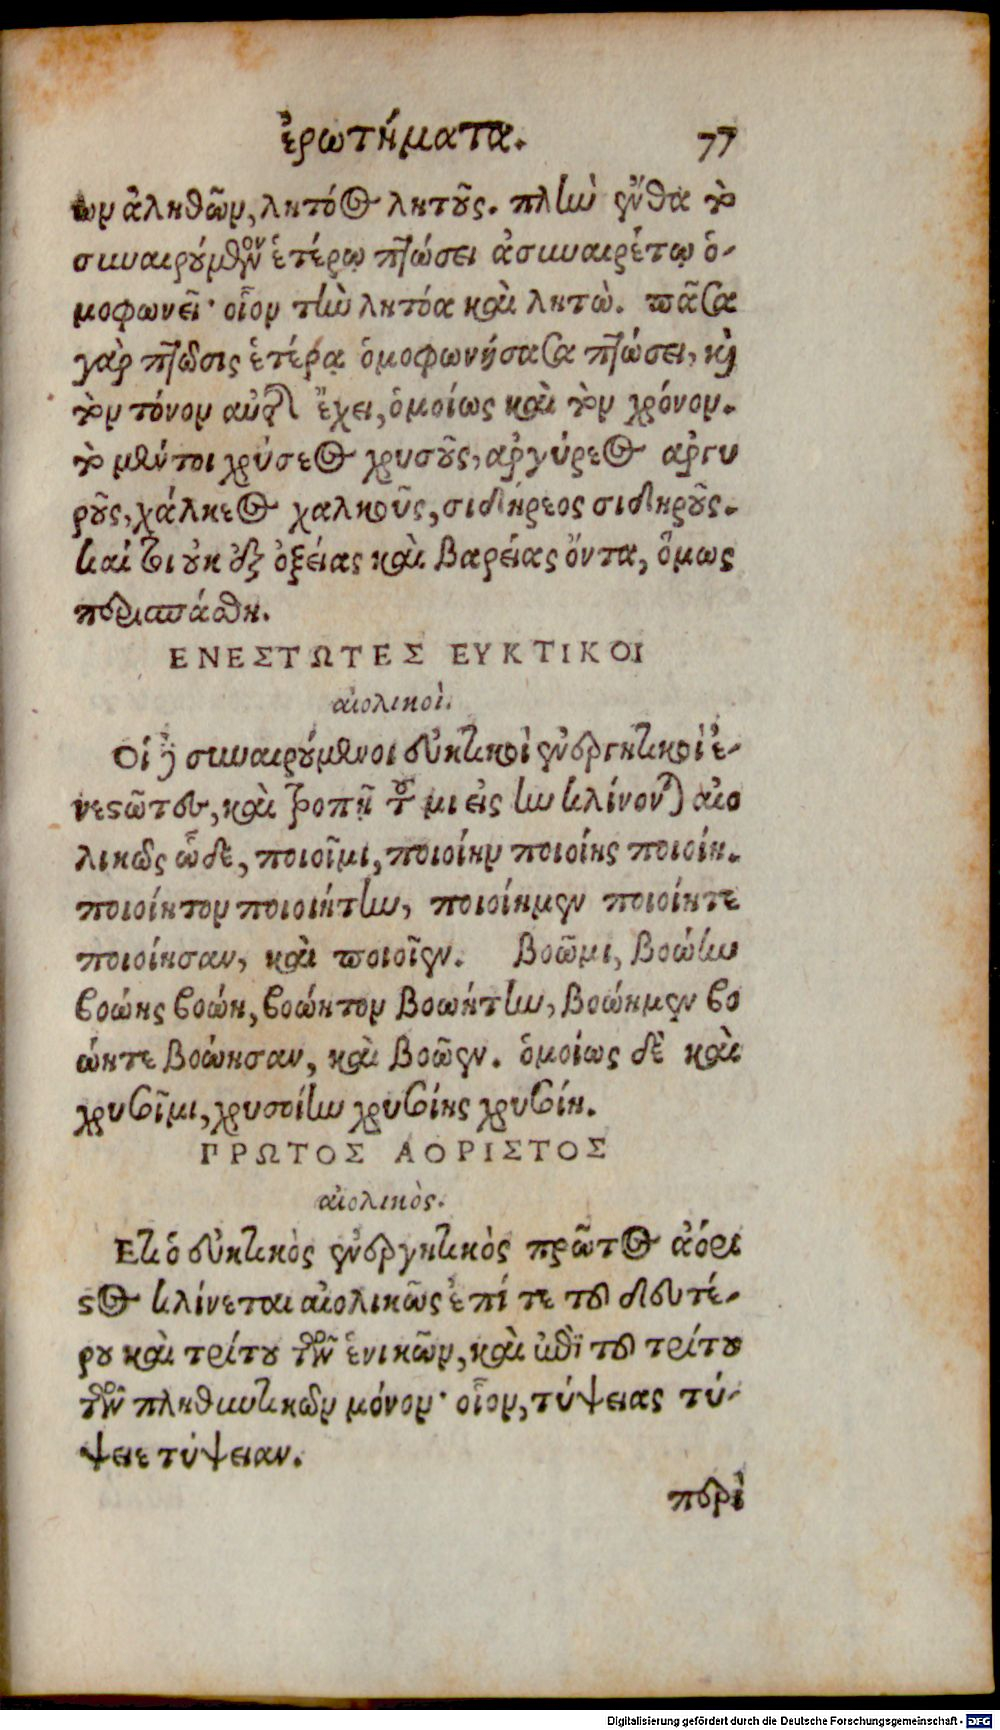 ἐρωτήματα. 77
ων ἀληθῶν, λητόος λητοῦς. πλὴν ἔνθα τὸ
συναιρούμενον ἑτέρῳ πτώσει ἀσυναιρέτῳ ὁ-
μοφωνεῖ· οἷον τὴν λητόα καὶ λητὼ. πᾶσα
γὰρ πτῶσις ἑτέρᾳ ὁμοφωνήσασα πτώσει, καὶ
τὸν τόνον αὐτῆς ἔχει, ὁμοίως καὶ τὸν χρόνον.
τὸ μέντοι χρύσεος χρυσοῦς, ἀργύρεος αργυ
ροῦς, χάλκεος χαλκοῦς, σιδήρεος σιδηροῦς.
καίτοι οὐκ ἐξ ὀξείας καὶ βαρείας ὄντα, ὅμως
περισπάσθη.
ΕΝΕΣΤΩΤΕΣ ΕΥΚΤΙΚΟΙ
αἰολικοὶ.
Οἱ δὲ συναιρούμενοι εὐκτικοὶ ἐνεργητικοὶ ἐ-
νεστῶτες, καὶ τροπῇ τοῦ μι εἰς ην κλίνονται αἰο
λικῶς ὧδε, ποιοῖμι, ποιοίην ποιοίης ποιοίη.
ποιοίητον ποιοιήτην, ποιοίημεν ποιοίητε
ποιοίησαν, καὶ ποιοῖεν. Βοῶμι, βοώην
βοώης βοώη, βοώητον βοωήτην, βοώημεν βο
ώητε βοώησαν, καὶ βοῶεν. ὁμοίως δὲ καὶ
χρυσοῖμι, χρυσοίην χρυσοίης χρυσοίη.
ΠΡΩΤΟΣ ΑΟΡΙΣΤΟΣ
αἰολικὸς.
Ετι ὁ εὐκτικὸς ἐνεργητικὸς πρῶτος ἀόρι
στος κλίνεται αἰολικῶς ἐπί τε τοῦ δευτέ-
ρου καὶ τρίτου τῶν ἑνικῶν, καὶ ἐπὶ τοῦ τρίτου
τῶν πληθυντικῶν μόνον· οἷον, τύψειας τύ-
ψειε τύψειαν.
περὶ
Digitalisierung gefördert durch die Deutsche Forschungsgemeinschaft - DFG